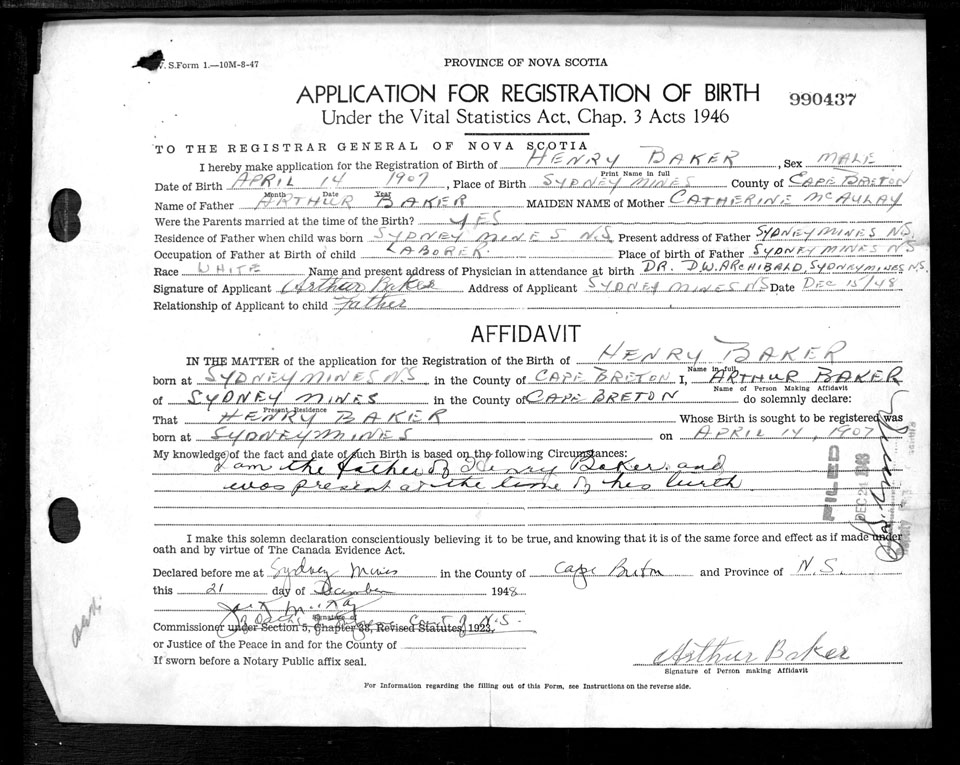 V. S. Form 1.—10M-8-47
PROVINCE OF NOVA SCOTIA
APPLICATION FOR REGISTRATION OF BIRTH
990437
Under the Vital Statistics Act, Chap. 3 Acts 1946
TO THE REGISTRAR GENERAL OF NOVA SCOTIA
I hereby make application for the Registration of Birth of HENRY BAKER, Sex MALE
Print Name in full
Date of Birth APRIL 14 1907, Place of Birth SYDNEY MINES County of CAPE BRETON
Month Date Year
Name of Father ARTHUR BAKER MAIDEN NAME of Mother CATHERINE McAULAY
Were the Parents married at the time of the Birth? YES
Residence of Father when child was born SYDNEY MINES N.S. Present address of Father SYDNEY MINES N.S.
Occupation of Father at Birth of child LABORER Place of birth of Father SYDNEY MINES N S
Race WHITE Name and present address of Physician in attendance at birth DR. D.W. ARCHIBALD, SYDNEY MINES N.S.
Signature of Applicant Arthur Baker Address of Applicant SYDNEY MINES N.S Date DEC 15/48
Relationship of Applicant to child Father
AFFIDAVIT
IN THE MATTER of the application for the Registration of the Birth of HENRY BAKER
Name in full
born at SYDNEY MINES N.S in the County of CAPE BRETON I, ARTHUR BAKER
Name of Person Making Affidavit
of SYDNEY MINES in the County of CAPE BRETON do solemnly declare:
Present Residence
That HENRY BAKER Whose Birth is sought to be registered was
born at SYDNEY MINES on APRIL 14, 1907
My knowledge of the fact and date of such Birth is based on the following Circumstances:
I am the father of Henry Baker and
was present at the time of his birth
FILED
DEC 21 1948
I make this solemn declaration conscientiously believing it to be true, and knowing that it is of the same force and effect as if made under
oath and by virtue of The Canada Evidence Act.
Declared before me at Sydney Mines in the County of Cape Breton and Province of N.S.
this 21 day of December 1948
Signature of
Commissioner under Section 5, Chapter 38, Revised Statutes, 1923,
or Justice of the Peace in and for the County of
If sworn before a Notary Public affix seal.
Arthur Baker
Signature of Person making Affidavit
For Information regarding the filling out of this Form, see Instructions on the reverse side.